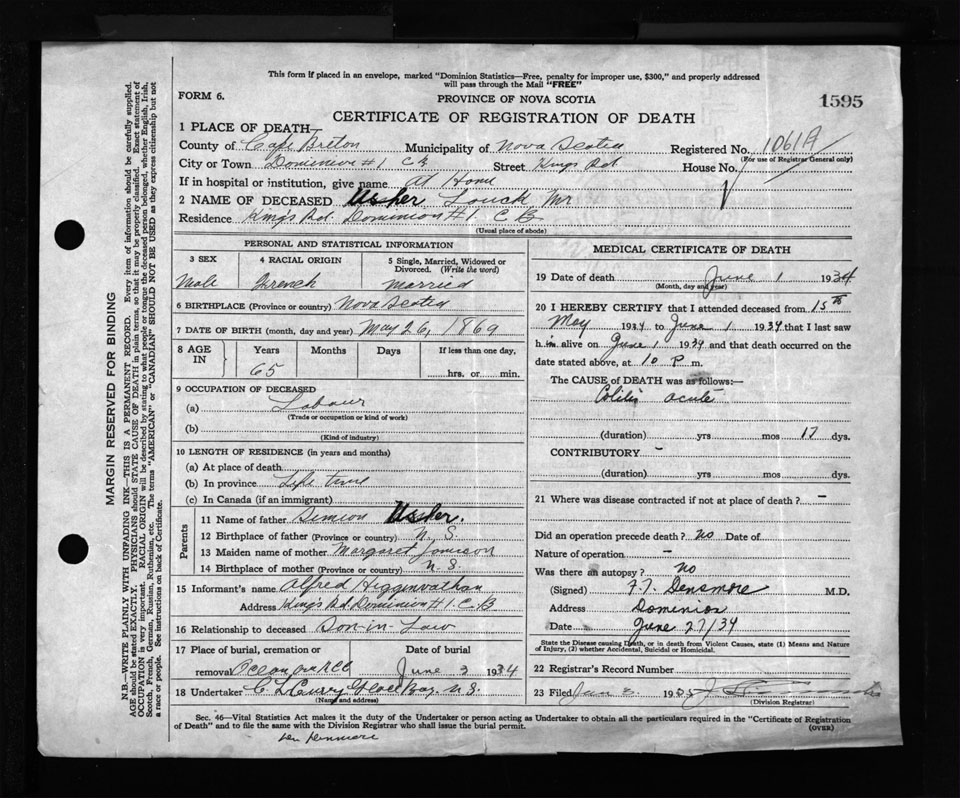 This form if placed in an envelope, marked "Dominion Statistics—Free, penalty for improper use, $300," and properly addressed
will pass through the Mail "FREE"
FORM 6.
PROVINCE OF NOVA SCOTIA
1595
CERTIFICATE OF REGISTRATION OF DEATH
1 PLACE OF DEATH
County of Cape Breton Municipality of Nova Scotia Registered No. 1061A
(For use of Registrar General only)
City or Town Dominion #1 C B Street Kings Rd House No.
If in hospital or institution, give name At Home
2 NAME OF DECEASED Ussher Mr
Residence Kings Rd. Dominion #1. C B
(Usual place of abode)
PERSONAL AND STATISTICAL INFORMATION
3 SEX 4 RACIAL ORIGIN 5 Single, Married, Widowed or Divorced. (Write the word)
Male French Married
6 BIRTHPLACE (Province or country) Nova Scotia
7 DATE OF BIRTH (month, day and year) May 26, 1869
8 AGE IN Years Months Days If less than one day,
65 hrs. or min.
9 OCCUPATION OF DECEASED
(a) Labour
(Trade or occupation or kind of work)
(b)
(Kind of industry)
10 LENGTH OF RESIDENCE (in years and months)
(a) At place of death
(b) In province Life time
(c) In Canada (if an immigrant)
Parents
11 Name of father Simion Ussher.
12 Birthplace of father (Province or country) N. S.
13 Maiden name of mother Margaret Jomison
14 Birthplace of mother (Province or country) N. S.
15 Informant's name Alfred
Address Kings Rd. Dominion #1. C. B
16 Relationship to deceased Son-in-Law
17 Place of burial, cremation or Date of burial
removal June 3 1934
18 Undertaker Curry Glace Bay. N. S.
(Name and address)
MEDICAL CERTIFICATE OF DEATH
19 Date of death June 1 1934
(Month, day and year)
20 I HEREBY CERTIFY that I attended deceased from 15th
May 1934 to June 1 1934 that I last saw
h im alive on June 1 1934 and that death occurred on the
date stated above, at 10 P m.
The CAUSE of DEATH was as follows:—
Colitis acute
(duration) yrs mos 17 dys.
CONTRIBUTORY -
(duration) yrs mos dys.
21 Where was disease contracted if not at place of death? -
Did an operation precede death? No Date of
Nature of operation -
Was there an autopsy? No
(Signed) F. T. Densmore M.D.
Address Dominion
Date June 27/34
State the Disease causing Death, or in death from Violent Causes, state (1) Means and Nature
of Injury, (2) whether Accidental, Suicidal or Homicidal.
22 Registrar's Record Number
23 Filed 19
(Division Registrar)
Sec. 46—Vital Statistics Act makes it the duty of the Undertaker or person acting as Undertaker to obtain all the particulars required in the "Certificate of Registration
of Death" and to file the same with the Division Registrar who shall issue the burial permit.
(OVER)
MARGIN RESERVED FOR BINDING
N.B.—WRITE PLAINLY WITH UNFADING INK—THIS IS A PERMANENT RECORD. Every item of information should be carefully supplied.
AGE should be stated EXACTLY. PHYSICIANS should STATE CAUSE OF DEATH in plain terms, so that it may be properly classified. Exact statement of
OCCUPATION is very important. RACIAL ORIGIN will be described by stating to what people or tongue the deceased person belonged, whether English, Irish,
Scotch, French, German, Russian, Ruthenian, etc. The terms "AMERICAN" or "CANADIAN" SHOULD NOT BE USED as they express citizenship but not
a race or people. See instructions on back of Certificate.